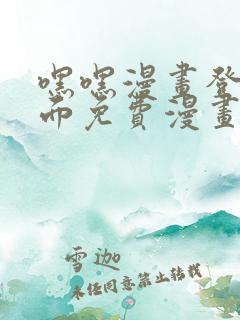 嘿嘿漫畫登
而免費漫畫
雪迦
未经同意禁止转载